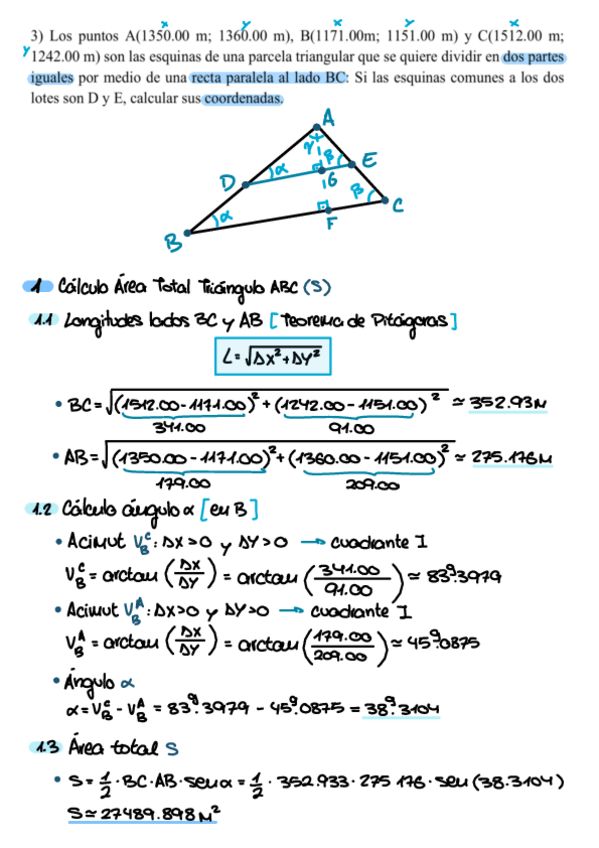 x y x y x
3) Los puntos A(1350.00 m; 1360.00 m), B(1171.00m; 1151.00 m) y C(1512.00 m;
y 1242.00 m) son las esquinas de una parcela triangular que se quiere dividir en dos partes
iguales por medio de una recta paralela al lado BC: Si las esquinas comunes a los dos
lotes son D y E, calcular sus coordenadas.
A
α β E
D G
β C
α F
B
1 Cálculo Área Total Triángulo ABC (S)
1.1 Longitudes lados BC y AB [Teorema de Pitágoras]
L=√ΔX²+ΔY²
• BC=√(1512.00-1171.00)²+(1242.00-1151.00)² ≃ 352.93M
341.00 91.00
• AB=√(1350.00-1171.00)²+(1360.00-1151.00)² ≃ 275.176M
179.00 209.00
1.2 Cálculo ángulo α [en B]
• Acimut V_B^C: ΔX>0 y ΔY>0 → cuadrante I
V_B^C = arctan (ΔX/ΔY) = arctan (341.00/91.00) ≃ 83ᵍ.3979
• Acimut V_B^A: ΔX>0 y ΔY>0 → cuadrante I
V_B^A = arctan (ΔX/ΔY) = arctan (179.00/209.00) ≃ 45ᵍ.0875
• Ángulo α
α=V_B^C - V_B^A = 83ᵍ.3979 - 45ᵍ.0875 = 38ᵍ.3104
1.3 Área total S
• S=1/2·BC·AB·senα=1/2·352.933·275 176·sen(38.3104)
S≃27489.898M²